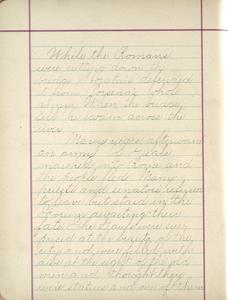 While the Romans
were cutting down the
bridge Horatius defended
it from Porsena's whole
army. When the bridge
fell he swam across the
river.
Many years afterward
an army of Gauls
marched into Rome and
the people fled. Many
priests and senators refused
to leave but staid in the
Forum awaiting their
fate. The Gauls were sur-
prised at the beauty of the
city and were filled with
awe at the sight of the old
men and thought they
were statues and one of them